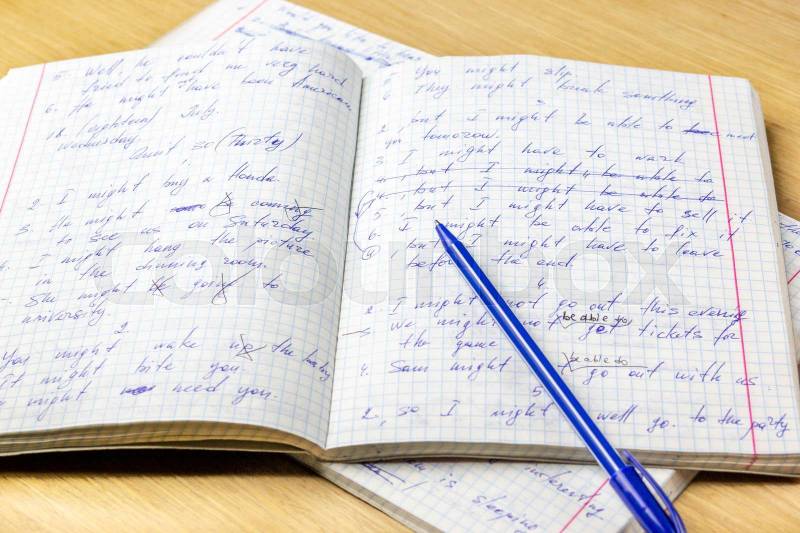 5. Well, he couldn't have
tried to find me very hard
6. He might not have been American
18. July.
Wednesday.
Unit 30 (Thirty)
2. I might buy a Honda
3. He might be coming
to see us on Saturday.
4. I might hang the picture
in the dinning room.
She might be going to
university.
2
You might wake up the baby
It might bite you.
might need you.
You might slip
6 They might break something
3
2, but I might be able to meet
you tomorrow.
3 I might have to work
4, but I might be able to
4, but I might be able to
5, but I might have to sell it
6. I might be able to fix it
, but I might have to leave
before the end.
4
2. I might not go out this evening
be able to
3. We might not get tickets for
the game
be able do
4. Sam might go out with us.
5
2, so I might well go to the party
interesting
is sleeping
colourbox